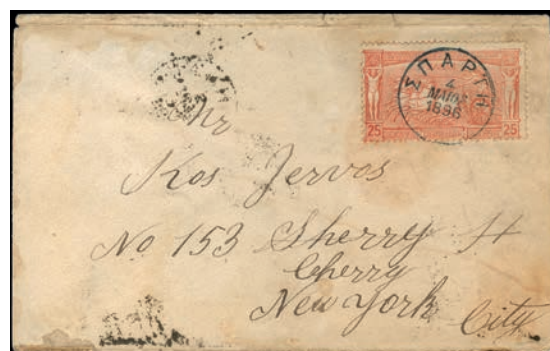 ΣΠΑΡΤΗ
4
ΜΑΙΟΥ
1896
25 25
Mr
Kos Jervos
No 153 Sherry St
Cherry
New York
City